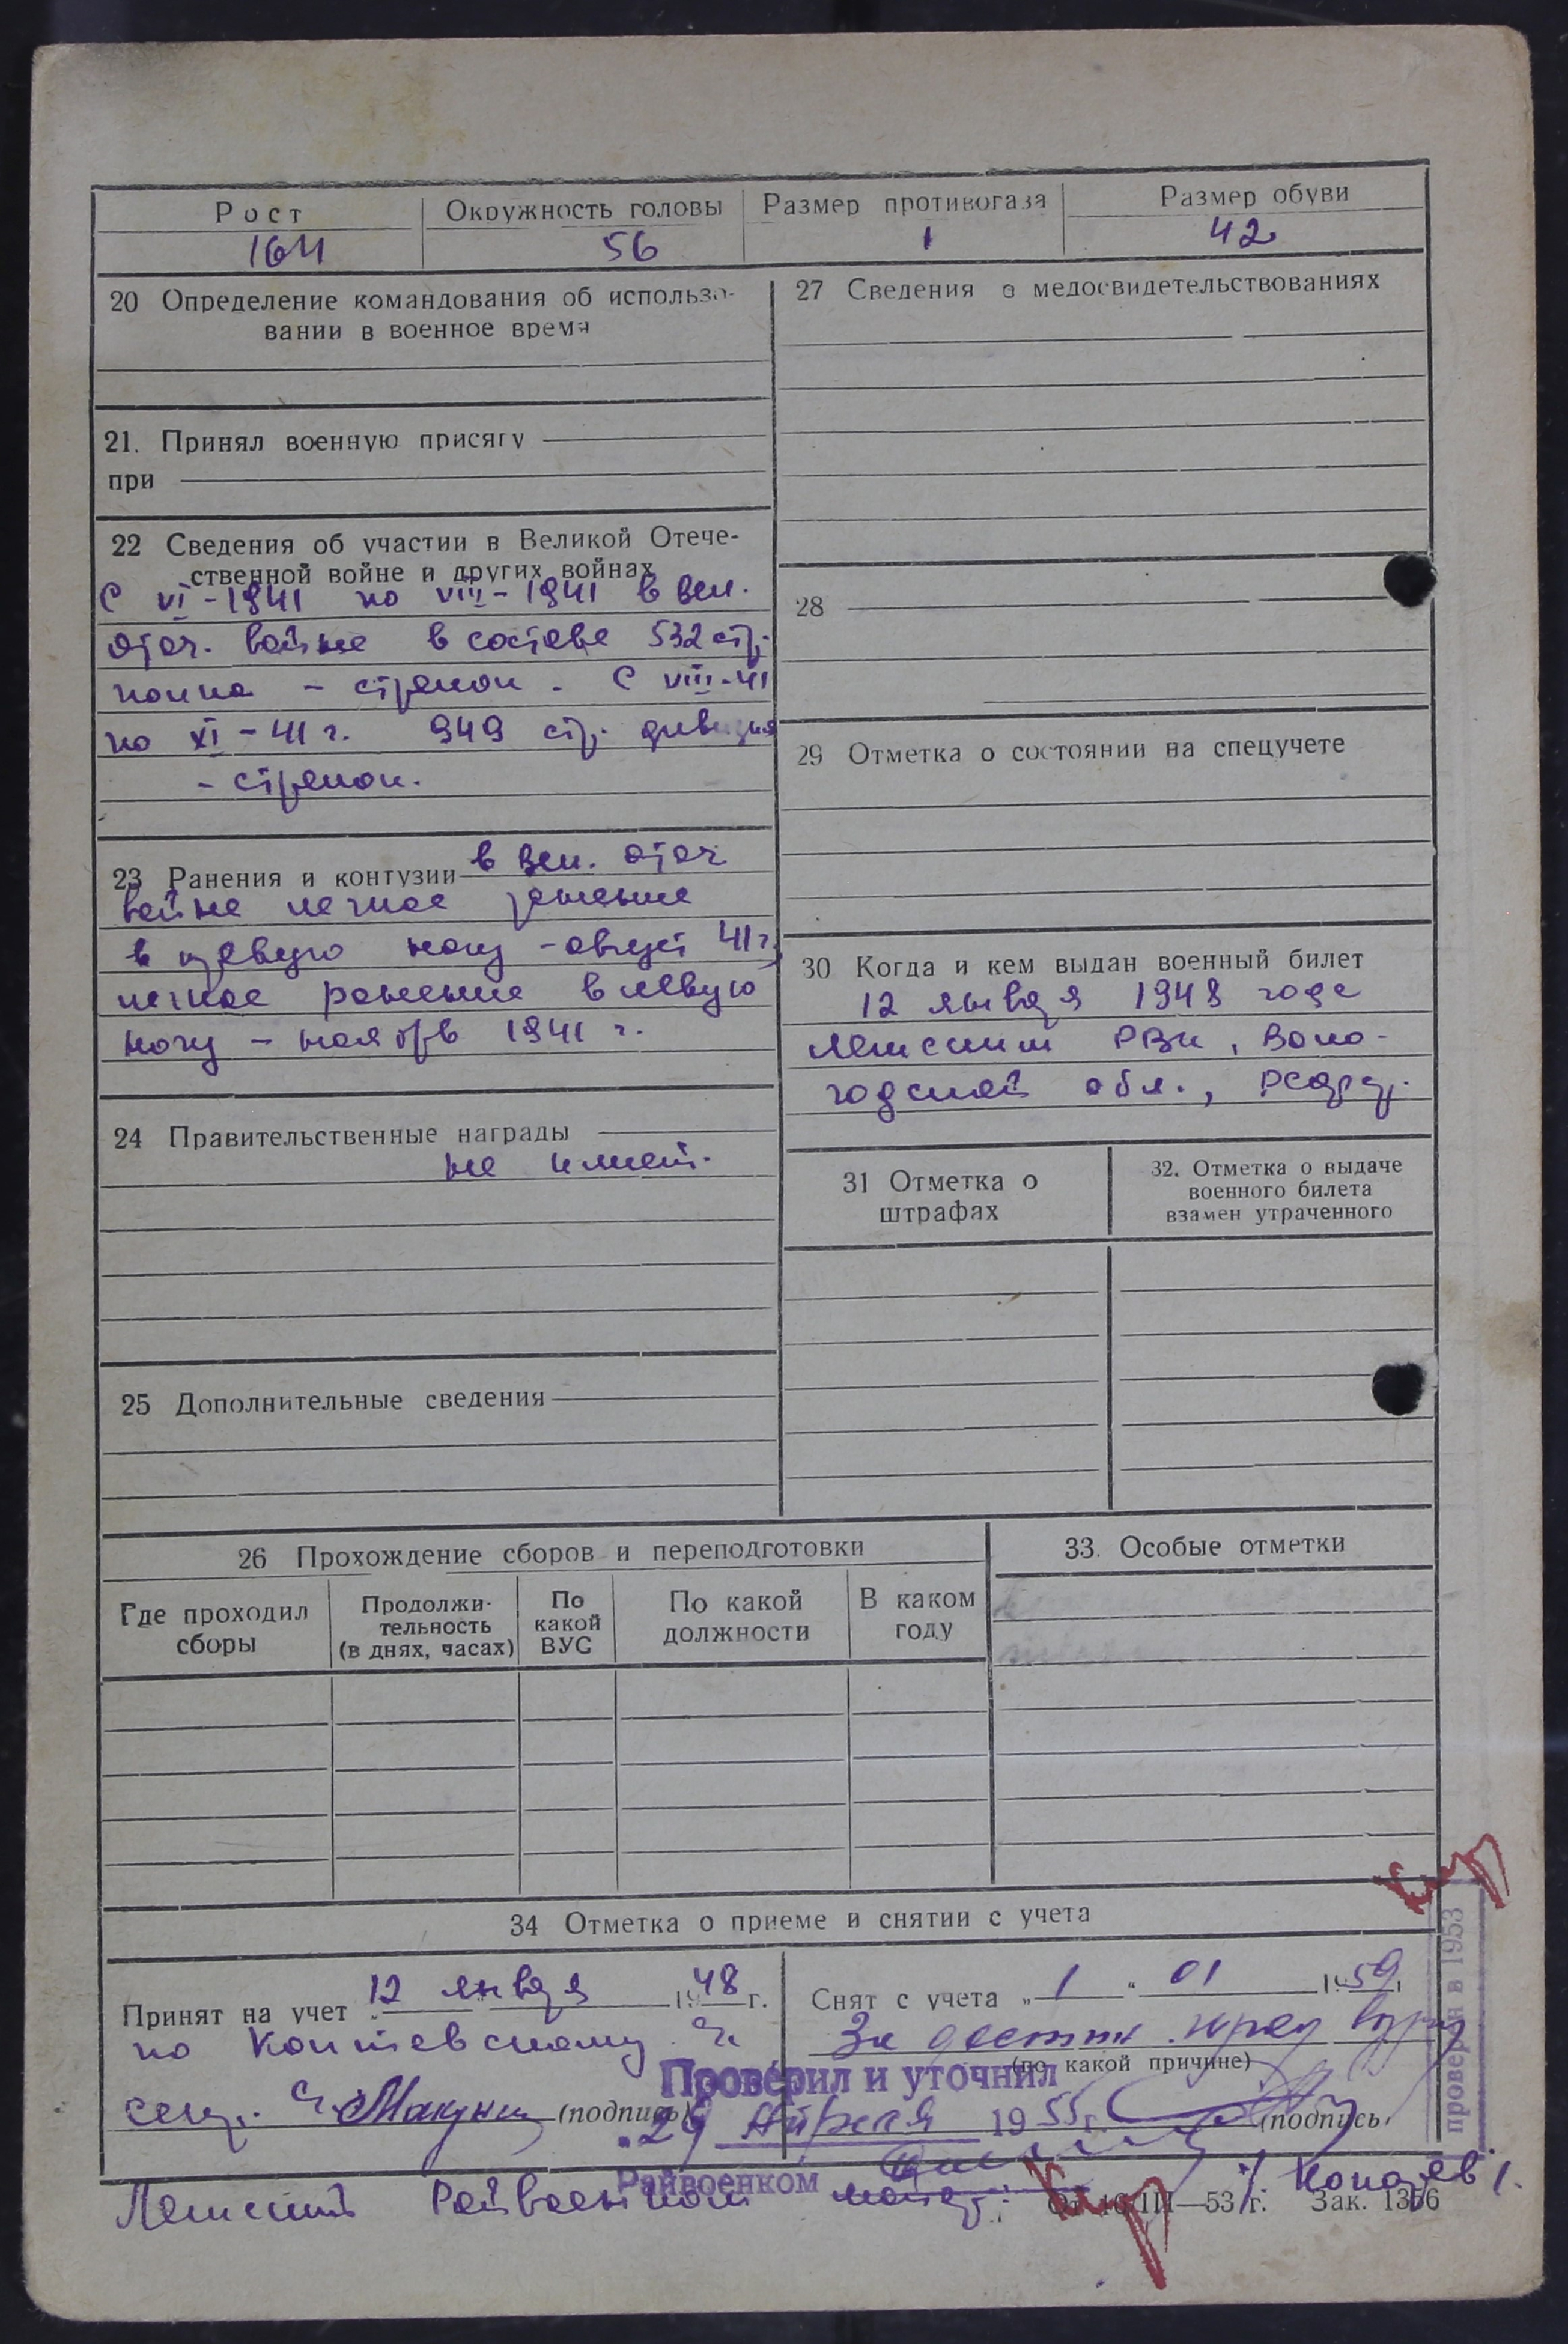 Рост Окружность головы Размер противогаза Размер обуви
164 56 1 42
20 Определение командования об использо-
вании в военное время
21. Принял военную присягу
при
22 Сведения об участии в Великой Отече-
ственной войне и других войнах
С VI-1941 по VIII-1941 в вел.
отеч. войне в составе 532 стр.
полка - стрелок. С VIII-41
по XI-41 г. 949 стр. дивизия
- стрелок.
23 Ранения и контузии в вел. отеч
войне легкое ранение
в правую ногу - август 41 г,
легкое ранение в левую
ногу - ноябрь 1941 г.
24 Правительственные награды
не имеет.
25 Дополнительные сведения
27 Сведения о медосвидетельствованиях
28
29 Отметка о состоянии на спецучете
30 Когда и кем выдан военный билет
12 января 1948 года
Лежским РВК, Воло-
годской обл., РСФСР.
31 Отметка о
штрафах
32. Отметка о выдаче
военного билета
взамен утраченного
26 Прохождение сборов и переподготовки
Где проходил
сборы
Продолжи-
тельность
(в днях, часах)
По
какой
ВУС
По какой
должности
В каком
году
33. Особые отметки
34 Отметка о приеме и снятии с учета
Принят на учет 12 января 1948 г.
по
(подпись)
Снят с учета „1“ 01 1959
За достиж. пред возр
(по какой причине)
(подпись)
Проверил и уточнил
„29 Апреля 1955 г.
Райвоенком
проверен в 1953
Лежский Райвоенком майор
От 10/III—53 г. Зак. 1356